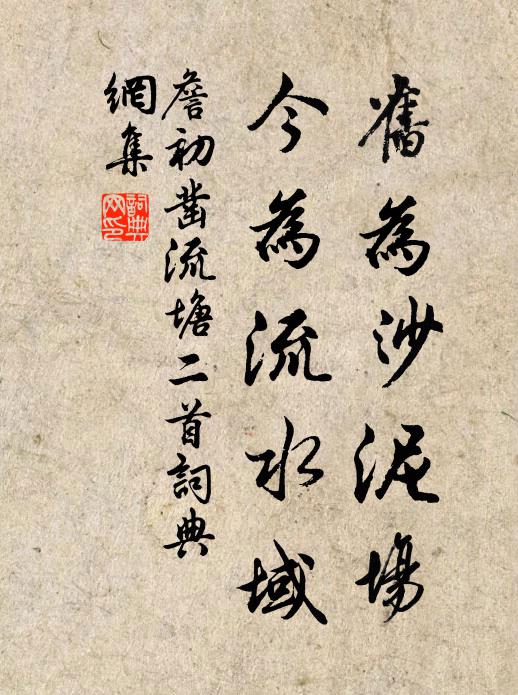 舊為沙泥場
今為流水域
詹初凿流塘二首詞典
網集
詞典
网印